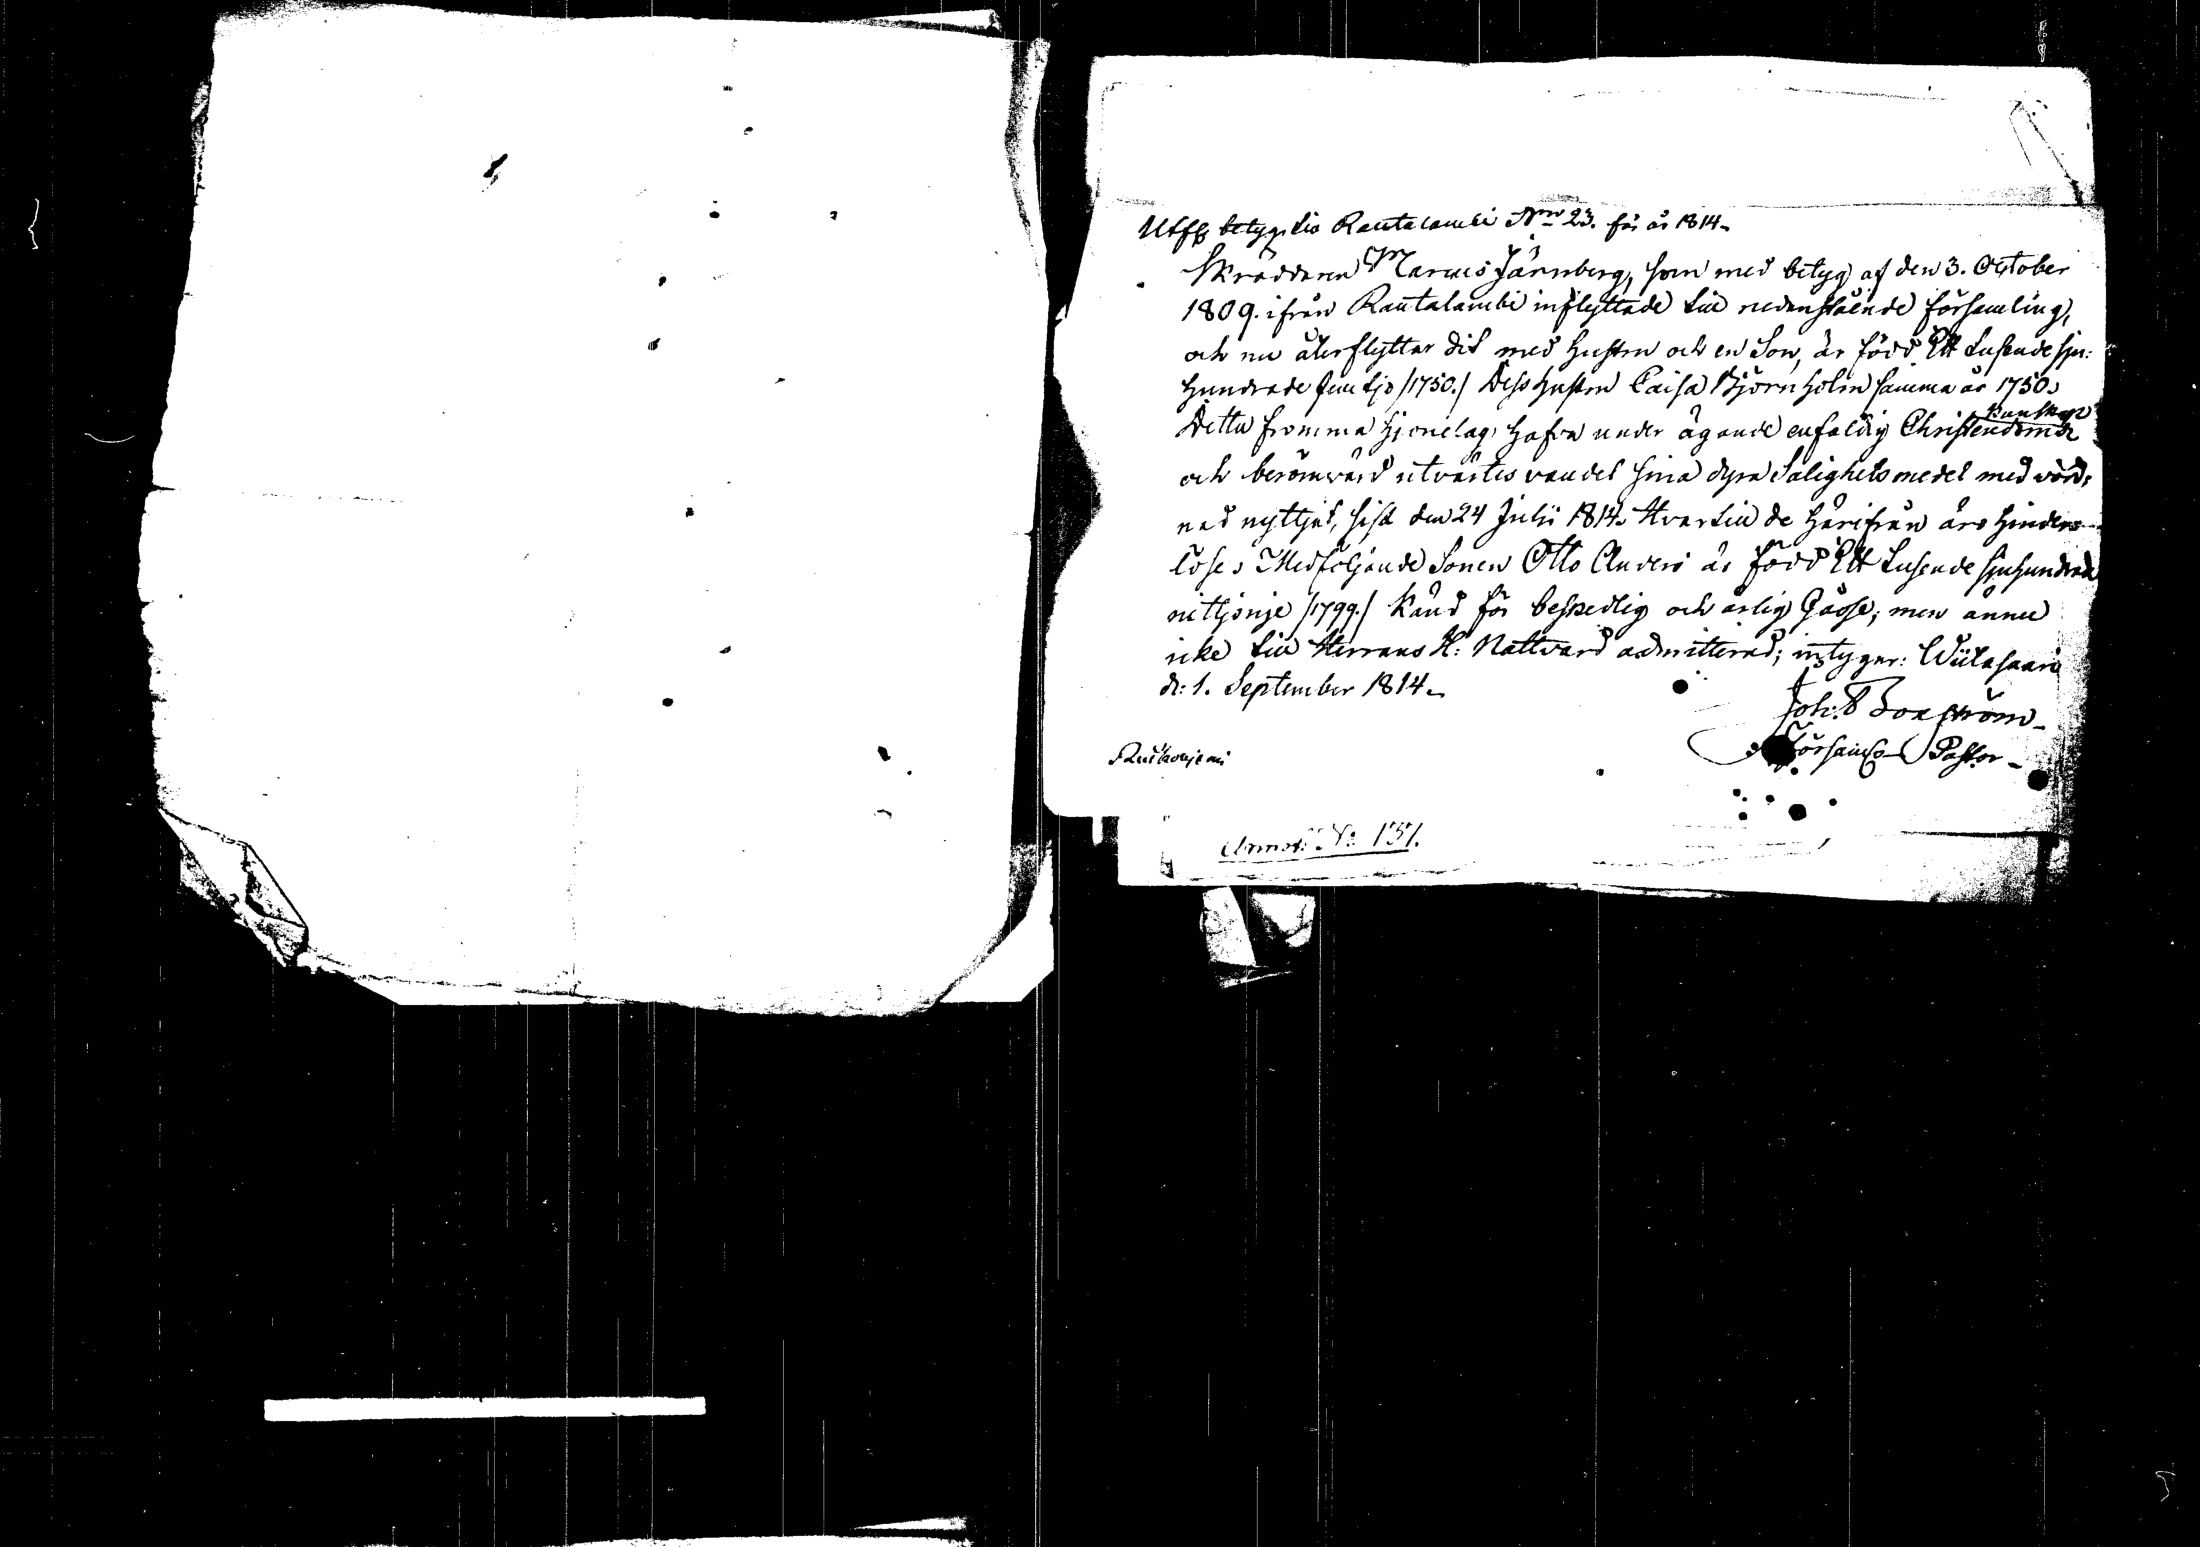 Utfl. betyg till Rautalambi Nro 23. för år 1814.
Skräddaren Marcus Järnberg, som med betyg af den 3. October
1809. ifrån Rautalambi inflyttade till nedanstående församling,
och nu återflyttar dit med hustru och en Son, är född Ett tusende sju-
hundrade femtjo /1750./ Dess hustru Caisa Björnholm samma år 1750.
Detta fromma hjonelag hafva under ägande enfaldig Christendoms
kunskap
och berömvärd utvärtes vandel sina dyra Salighets medel med vörd-
nad nyttjat, sist den 24 Julii 1814. Hvartill de härifrån äro hinders-
löse. Medföljande Sonen Otto Anders är född Ett tusende sjuhundrade
nittjonje /1799./ känd för beskedlig och ärlig Gåsse; men ännu
icke till Herrans H: Nattvard admitterad; intygar: Wiitasaari
d: 1. September 1814.
Joh:
Församl: Pastor
Annot: No: 151.